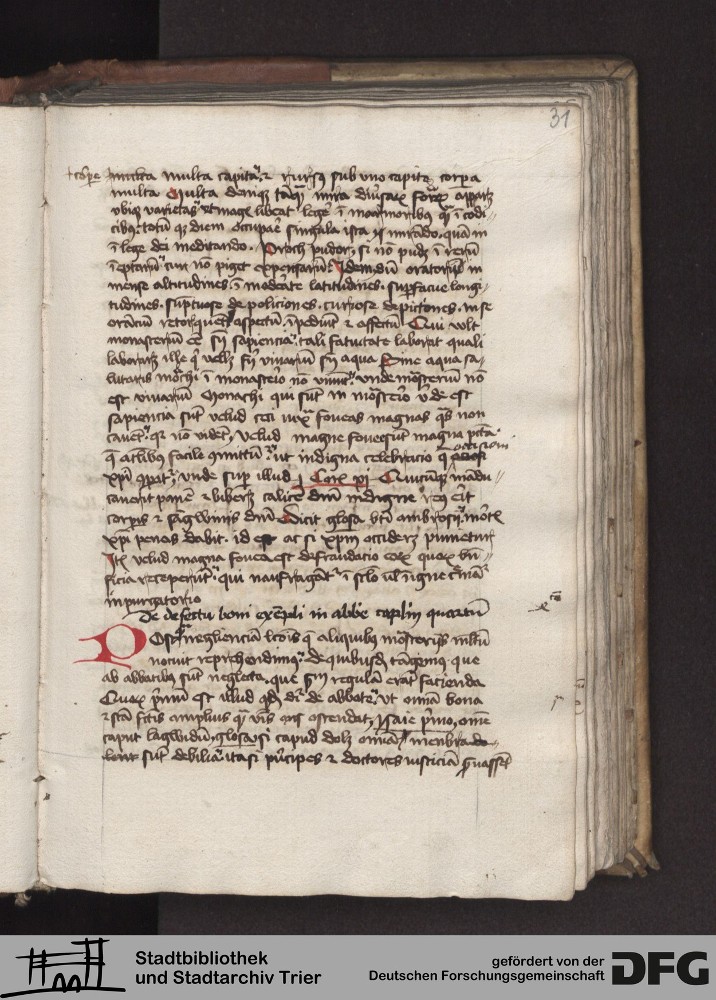 31
multa capita et rursus sub uno capite corpora
multa Multa denique tamque mira diversarum formarum apparet
ubique varietas ut magis libeat legere in marmoribus quam in codi-
cibus totum que diem occupare singula ista mirando quam in
in lege dei meditando. Proch pudor, si non pudet
cur non piget expensarum Idem dum oratoriis in
mense altitudines inmoderate latitudines supervacue longi-
tudines sumptuose depoliciones curiose depictiones que in se
orancium retorquent aspectum inpediunt et affectum Qui vult
monasterium esse sine sapiencia tali fatuitate laborat quali
laboraret ille qui vellet vivarium sine aqua Sine aqua sa-
lutaris monachi in monasterio non vivunt unde monasterium non
est vivarium Monachi qui sunt in monasterio ubi non est
sapiencia sunt velud ceci iuxta foveas magnas quas non
cavent quia non vident, velud magne fovee sunt magna peccata
ut indigna celebratio
occisioni
Christi unde super illud 1 Cor xi Quicumque mandu-
caverit panem et biberit calicem domini indigne reus erit
corporis et sanguinis domini Dicit glosa beati ambrosii mortis
Christi penas dabit. id est ac si Christum occiderit punietur
Item velud magna fovea est defraudacio eorum quorum bene-
ficia receperunt qui naufragant in seculo vel igne
in purgatorio
De defectu boni exempli in abbate caplm quartum
Post negligenciam que aliquibus monasteriis multum
nocuit reprehendimus de quibusdam tangemus que
ab abbatibus sunt neglecta que secundum regulam erant facienda
Quorum primum est illud quod dicitur de abbate ut omnia bona
et sancta factis amplius quam verbis ostendat, ysaie primo, omne
caput langwidum, glosa si capud dolet omnia menbra do-
lent sunt debilia ita si principes et doctores iusticiam
Stadtbibliothek
und Stadtarchiv Trier
gefördert von der
Deutschen Forschungsgemeinschaft
DFG